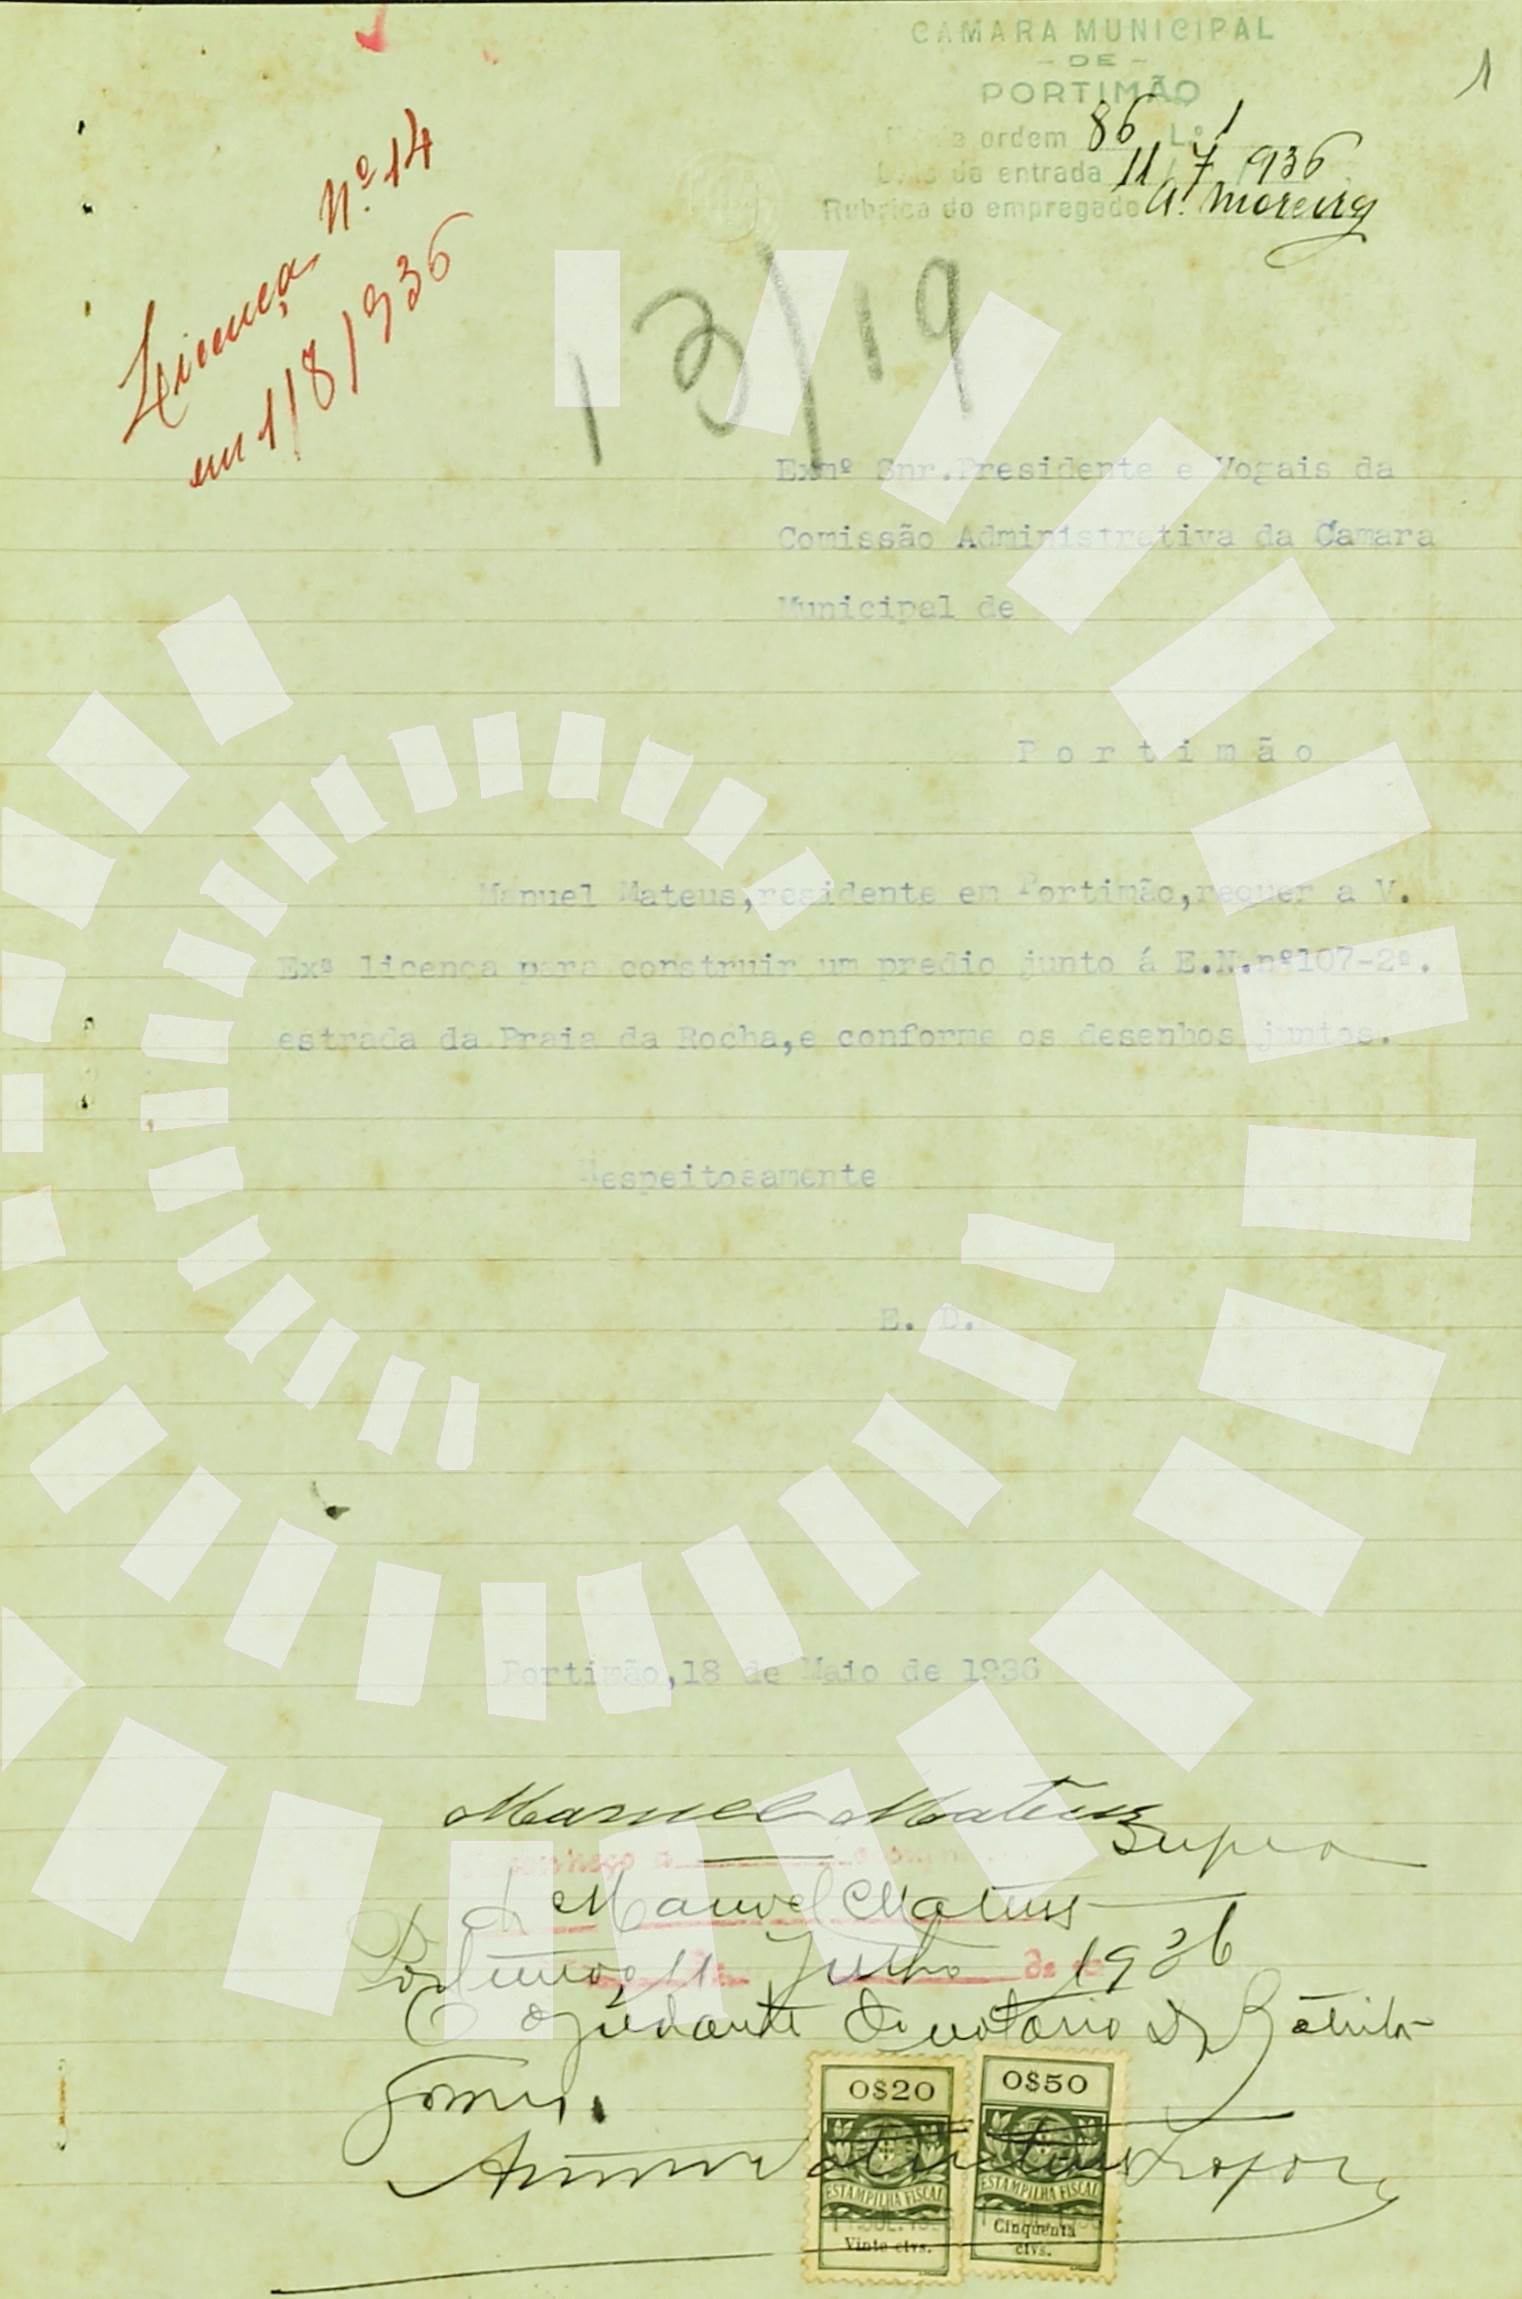 CAMARA MUNICIPAL
- DE -
PORTIMÃO
1
ordem 86 L.º 1
da entrada 11 / 7 / 936
Rubrica do empregado A. Moreira
Licença Nº 14
em 1/8/936
13/19
Exmº Snr.Presidente e Vogais da
Comissão Administrativa da Camara
Municipal de
Portimão
Manuel Mateus,residente em Portimão,requer a V.
Exª licença para construir um predio junto á E.N.nº107-2ª.
estrada da Praia da Rocha,e conforme os desenhos juntos.
Respeitosamente
E. D.
Portimão,18 de Maio de 1936
Manuel Mateus
supra
Manuel Mateus
Portimão, 11 Julho de 1936
O ajudante do notario Dr
Gomes.
0$20 0$50
ESTAMPILHA FISCAL ESTAMPILHA FISCAL
Vinte ctvs. Cinquenta
ctvs.